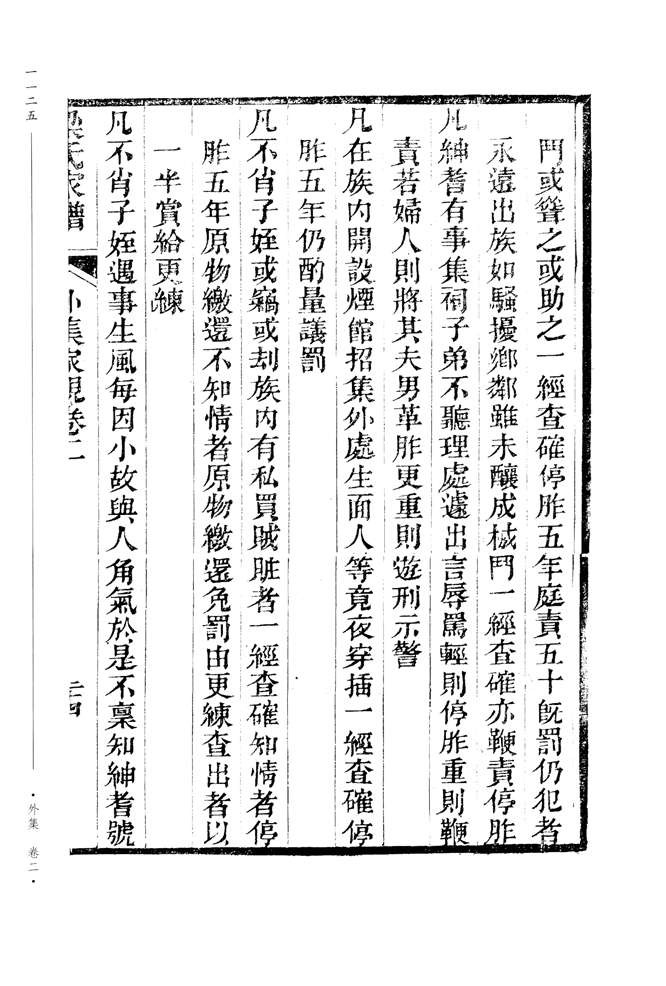 鬥或聳之或助之一經查確停胙五年庭責五十旣罰仍犯者
永遠出族如騷擾鄉鄰雖未釀成械鬥一經查確亦鞭責停胙
凡紳耆有事集祠子弟不聽理處遽出言辱罵輕則停胙重則鞭
責若婦人則將其夫男革胙更重則遊刑示警
凡在族內開設煙館招集外處生面人等竟夜穿插一經查確停
胙五年仍酌量議罰
凡不肖子姪或竊或刦族內有私買賊脏者一經查確知情者停
胙五年原物繳還不知情者原物繳還免罰由更練查出者以
一半賞給更練
凡不肖子姪遇事生風每因小故與人角氣於是不稟知紳耆號
梁氏家譜
小集家規卷二
二四
一一二五
·外集 卷二·